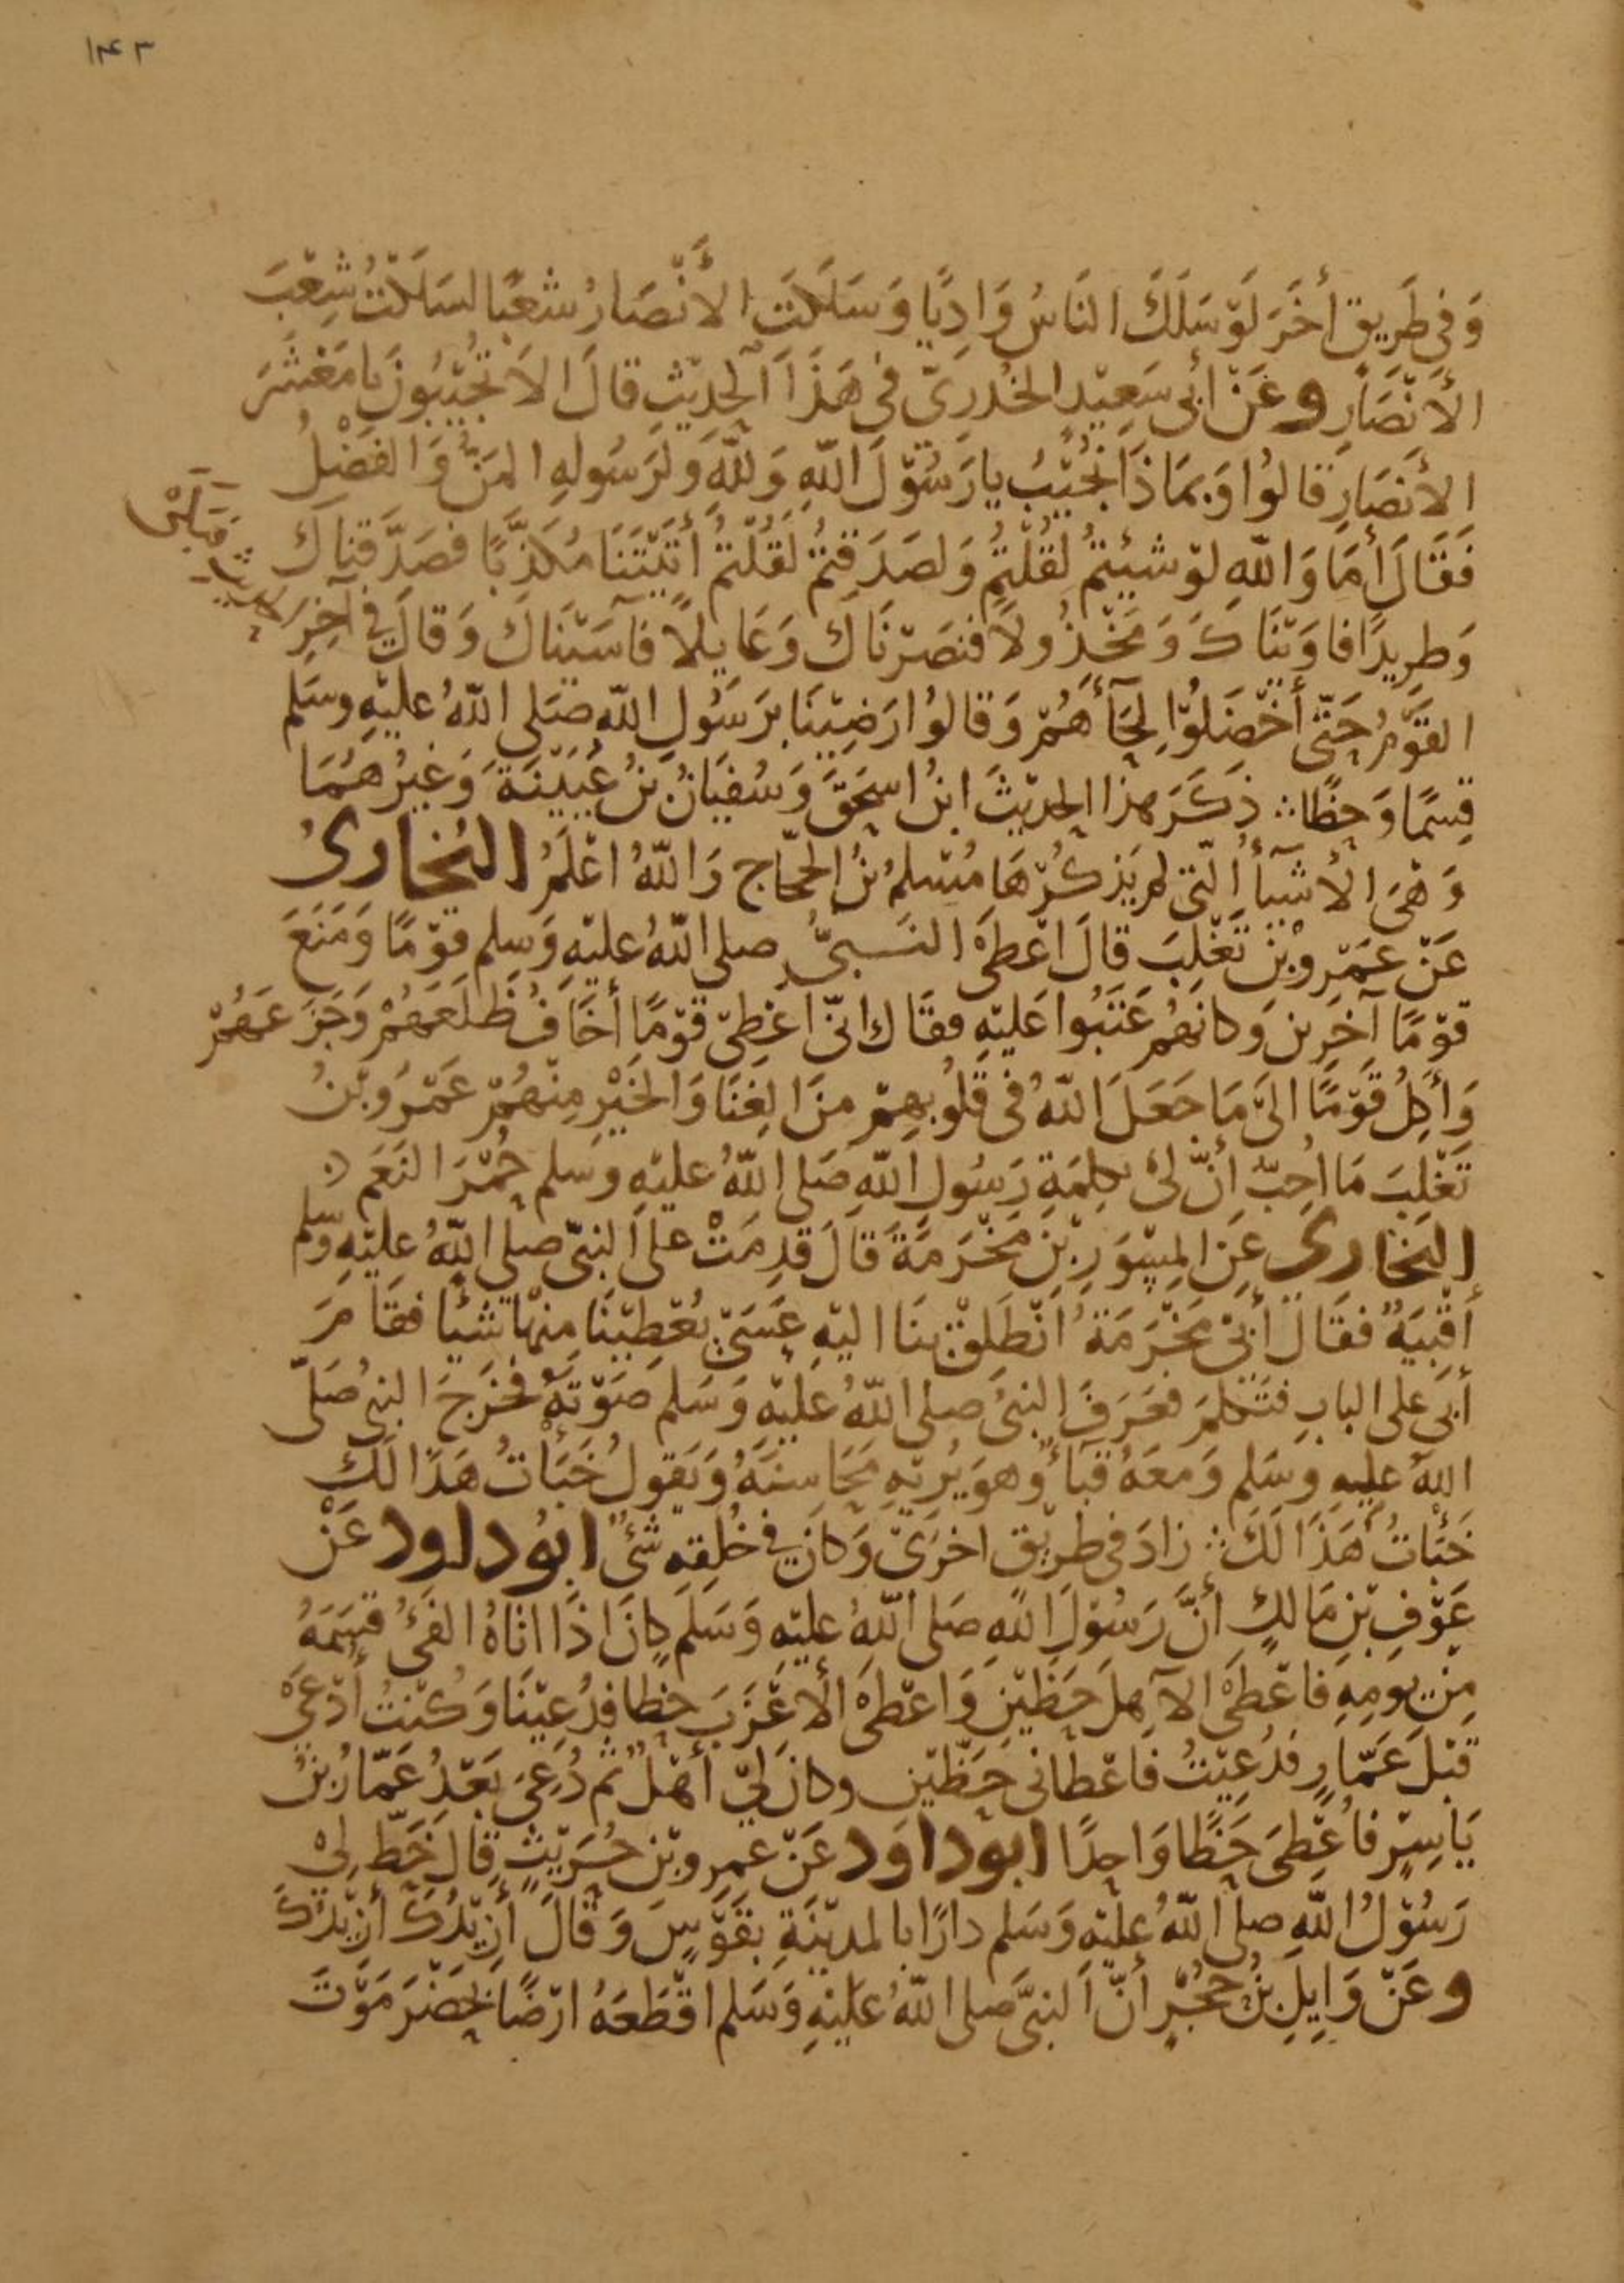 ١٤٣
وَفِي طَرِيقٍ أُخْرَ لَوْ سَلَكَ النَّاسُ وَادِيًا وَسَلَكَتِ الأَنْصَارُ شِعْبًا لَسَلَكْتُ شِعْبَ
الأَنْصَارِ وعَنْ أَبِي سَعِيْدٍ الخُدْرِيّ في هَذَا الحَدِيْثِ قالَ الاَ تُجِيْبُونَ يا مَعْشَرَ
الأَنْصَارِ قَالُوا وَبِمَاذَا نُجِيْبُ يا رَسُوْلَ اللّهِ وَلِلَّهِ وَلِرَسُولِهِ المَنُّ وَالفَضْلُ
فَقَالَ أَمَا وَاللّهِ لَوْ شِيْئتُمْ لَقُلْتُمْ وَلَصَدَقْتُمْ لَقُلْتُمْ أَتَيْتَنَا مُكَذَّبًا فَصَدَّقْنَاكَ
وَطَرِيدًا فَاوَيْنَاكَ وَمَخْذُولاً فَنَصَرْنَاكَ وَعَايِلاً فَآسَيْنَاكَ وَقَالَ فِي آخِرِ الحديث فَبَكَى
القَوْمُ حَتَّى أَخْضَلُوْا لِحَاَأهُمْ وَقَالُوا رَضِيْنَا بِرَسُولِ اللّهِ صَلى اللّهُ عَليْهِ وسَلم
قِسْمًا وَحَظًّا ∴ ذَكَرَ هذا الحَدِيْثَ ابْنُ اسحَقَ وَسُفْيَانُ بْنُ عُيَيْنَةَ وَغَيْرُهُمَا
وَهْيَ الأَشْيَآأُ الّتِي لم يَذكُرْهَا مُسْلِمُ بْنُ الحَجّاج وَاللّهُ اعْلَمُ البُخارى
عَنْ عَمْرِو بْنِ تَغْلِبَ قَالَ اعْطَى النَّبيُّ صلى اللّهُ عليْهِ وَسلم قوْمًا وَمَنَعَ
قوْمًا آخَرِينَ وَكَانهُمْ عَتَبُوا عَليْهِ فقَال انّي اعْطِي قوْمًا أخَافُ ظَلَعَهُمْ وَجَزَعَهُمْ
وَأَكِلُ قَوْمًا الَى مَا جَعَلَ اللّهُ فِي قُلُوبِهِمْ مِنَ الغِنَا وَالخَيْرِ مِنْهُمْ عَمْرُو بْنُ
تَغْلِبَ مَا أُحِبُّ أَنَّ لِيْ بكلِمَةِ رَسُولِ اللّهِ صَلى اللّهُ عليْهِ وسَلم حُمْرَ النَعَم ∴
البُخارى عَنِ المِسْوَرِ بْنِ مَخْرَمَةَ قَالَ قَدِمَتْ على النبيّ صلى اللّهُ عليْهِ وسلم
أَقْبِيَةٌ فقَالَ أَبِيْ مَخْرَمَةُ انْطَلِقْ بِنَا اليْهِ عَسَيْ يُعْطِيْنَا مِنْها شَيْئا فقَامَ
أَبِي على البابِ فتَكلمَ فعَرَفَ النبيُ صلى اللّهُ عليْهِ وَسَلم صَوْتَهُ فخَرَجَ النبيُ صَلّى
اللّهُ عليهِ وسَلم وَمَعَهُ قبَآءٌ وَهوَ يُرِيْهِ مَحَاسِنَهُ وَيَقولُ خَبَأْتُ هَذَا لَكَ
خَبَأْتُ هَذَا لَكَ ∴ زادَ في طَرِيْقٍ اخرَى وَكانَ في خُلُقِهِ شَيْءٌ ابوُ داود عَنْ
عَوْفِ بْنِ مَالِكٍ أنَّ رَسُوْلَ اللّهِ صَلى اللّهُ عليْهِ وَسَلمَ كانَ اذَا اتَاهُ الفَيْءُ قَسَمَهُ
مِنْ يَومِهِ فاعْطَى الآهِلَ حَظَّيْنِ وَاعْطى الأَعْزَبَ حَظا فدُعِيْنَا وَكنْتُ أُدْعَى
قَبْلَ عَمَّارٍ فدُعِيْتُ فَاعْطانى حَظّيْنِ وكانَ لِيْ أَهْلٌ ثم دُعِيَ بَعْدُ عَمّارُ بْنُ
يَاسِرٍ فأُعْطِيَ حَظًا وَاحِدًا ابوْ داوَد عَنْ عمرِو بْنِ حُرَيْثٍ قَالَ خَطّ لِيْ
رَسُوْلُ اللّهِ صلى اللّهُ عليْهِ وَسَلم دارًا بالمدِيْنَةِ بِقَوْسٍ وَقَالَ أَزِيْدُكَ أَزِيْدُكَ
وعَنْ وَايِلِ بْنُ حُجْرٍ أنّ النبيَّ صلى اللّهُ عليْهِ وَسَلم اقْطَعَهُ ارْضًا بِحَضْرَمَوْتَ